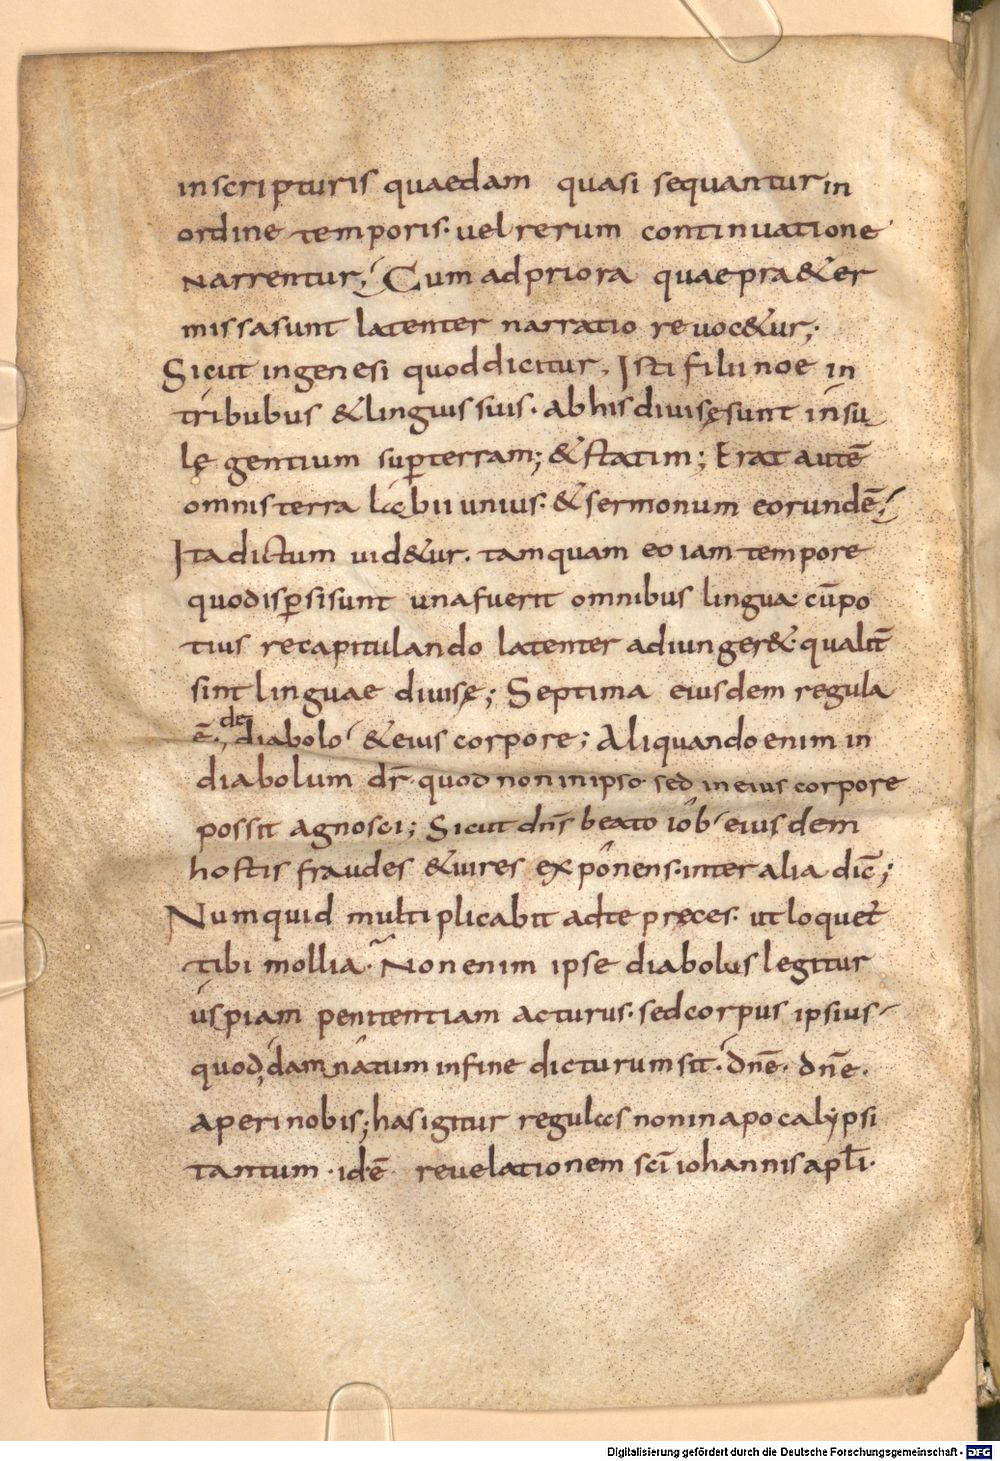 inscripturis quaedam quasi sequantur in
ordine temporis. uel rerum continuatione
Narrentur; Cum ad priora quae pra&er
missa sunt latenter narratio reuoc&ur;
Sicut in genesi quod dicitur, Isti filii noe in
tribubus & linguis suis. Ab his diuisę sunt insu
lę gentium sup̄ terram; & statim; Erat autē
omnis terra labii unius. & sermonum eorundē;
Ita dictum uid&ur. tamquam eo iam tempore
quo disp̄sisunt una fuerit omnibus lingua. cū po
tius recapitulando latenter adiunger&. qualit̄
sint linguae diuisę; Septima eiusdem regula
ē. de diabolo & eius corpore; Aliquando enim in
diabolum dr̄. quod non in ipso sed in eius corpore
possit agnosci; Sicut dn̄s beato iob eius dem
hostis fraudes & uires exponens. inter alia dic̄;
Numquid multiplicabit ad te pręces. ut loquet̄
tibi mollia. Non enim ipse diabolus legitur
uspiam penitentiam acturus. sed corpus ipsius
quod, damnatum in fine dicturum sit. dn̄e. dn̄e.
aperi nobis; has igitur regulas non in apocalypsi
tantum. id ē revelationem sc̄i iohannis apl̄i.
Digitalisierung gefördert durch die Deutsche Forschungsgemeinschaft - DFG